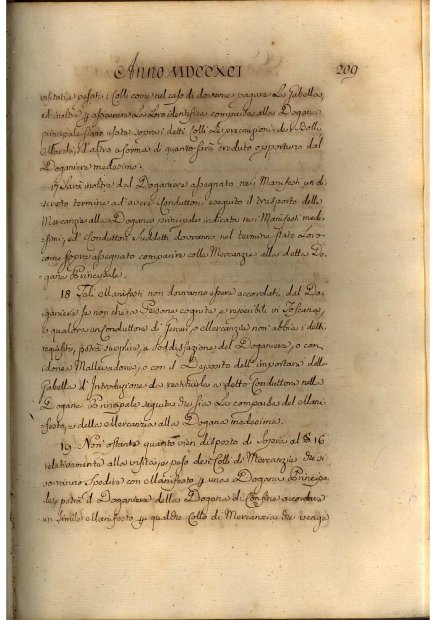 Anno MDCCXCI 209
visitati, e pesati i Colli come nel caso di doverne pagare la Gabella,
ed inoltre p assicurare la loro identifica comparsa alla Dogana
principale siano usate sopra i detti Colli le precauzioni de Bolli,
Marchi, ed altro a forma di quanto sarà creduto opportuno dal
Doganiere medesimo.
17 Sarà inoltre dal Doganiere assegnato nei Manifesti un di-
screto termine ad avere i Conduttori eseguito il trasporto delle
Mercanzie alla Dogana principale indicata nei Manifesti mede-
simi, ed i Conduttori suddetti dovranno nel termine stato Loro
come sopra assegnato comparire colle Mercanzie alla detta Do-
gana Principale.
18 Tali Manifesti non dovranno essere accordati dal Do-
ganiere se non che a Persone cognite, e responsabili in Toscana,
e qualora un Conduttore di Generi, o Mercanzie non abbia i detti
requisiti, potrà supplire, a soddisfazione del Doganiere, o con
idonea Mallevadoria, o con il Deposito dell'importare della
Gabella d'Introduzione da restituirsi a detto Conduttore nella
Dogana Principale seguita che sia la comparsa del Mani-
festo, e della Mercanzia alla Dogana medesima.
19 Non ostante quanto vien disposto di sopra al §. 16
relativamente alla visita, e peso dei Colli di Mercanzie che si
vorranno spedire con Manifesto p una Dogana Principa-
le, potrà il Doganiere della Dogana di Confine accordare
un simile Manifesto p qualche Collo di Mercanzia che venga